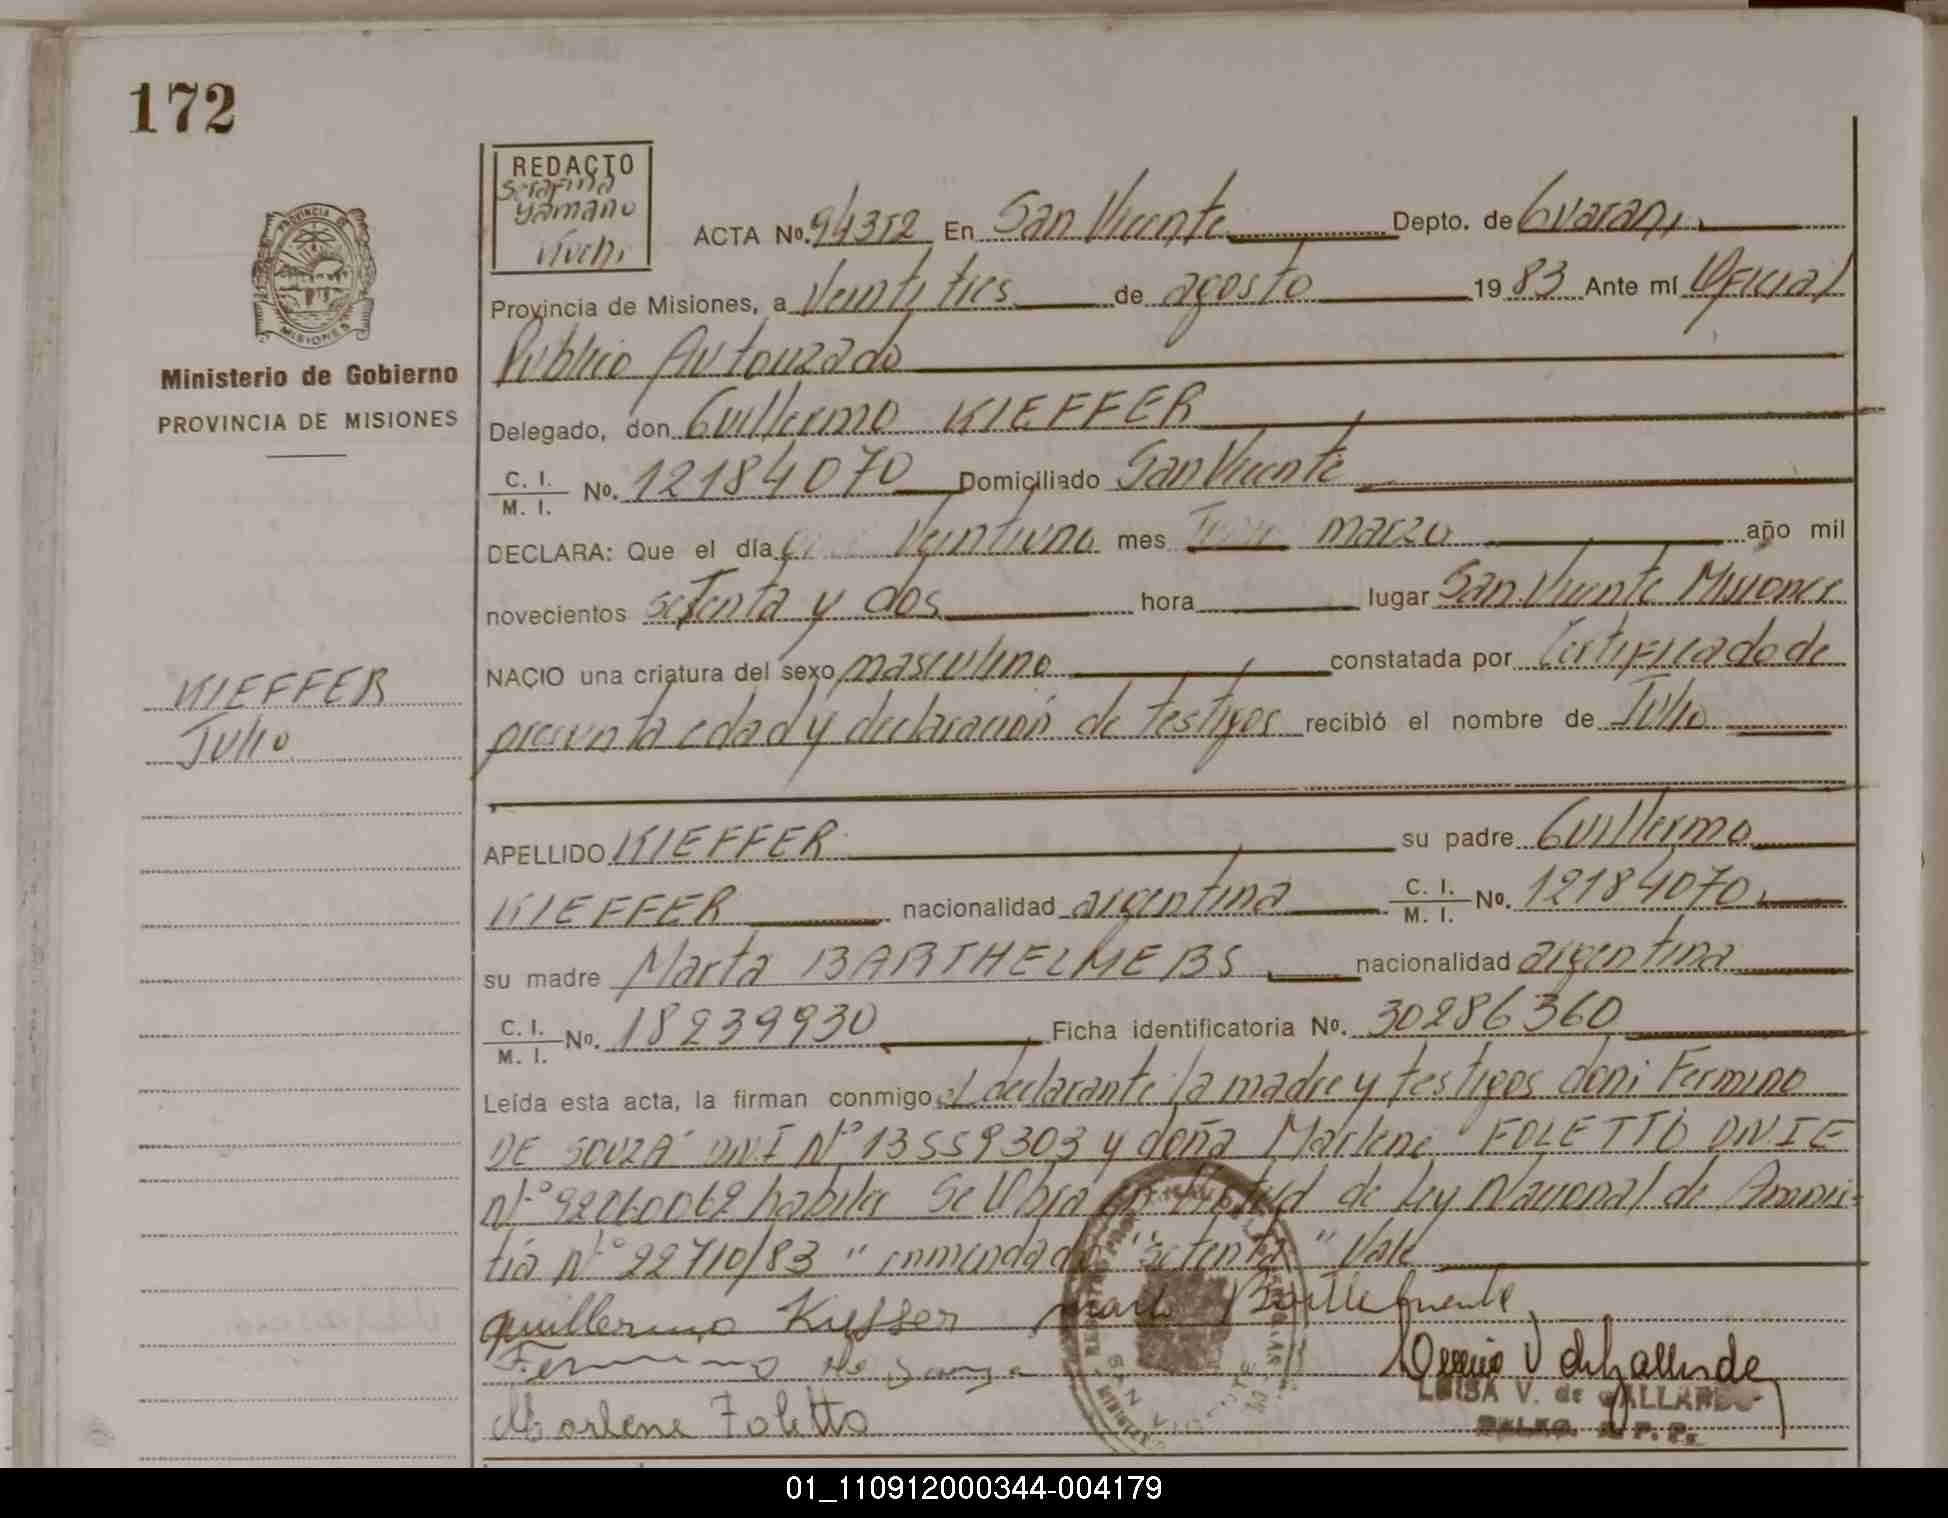 172
REDACTO
Serafina
Yamano
Viuchi
ACTA No. 94352 En San Vicente Depto. de Guarani
Provincia de Misiones, a Veintitres de agosto 1983 Ante mí Oficial
Publico Autorizado
Ministerio de Gobierno
PROVINCIA DE MISIONES
Delegado, don Guillermo KIEFFER
C. I. / M. I. No. 12184070 Domiciliado San Vicente
DECLARA: Que el día Veintiuno mes marzo año mil
novecientos setenta y dos hora lugar San Vicente Misiones
NACIO una criatura del sexo masculino constatada por Certificado de
presunta edad y declaración de testigos recibió el nombre de Julio
KIEFFER
Julio
APELLIDO KIEFFER su padre Guillermo
KIEFFER nacionalidad argentina C. I. / M. I. No. 12184070
su madre Marta BARTHELMEBS nacionalidad argentina
C. I. / M. I. No. 18239930 Ficha identificatoria No. 30286360
Leída esta acta, la firman conmigo el declarante la madre y testigos don: Fermino
DE SOUZA D.N.I Nº 13559303 y doña Marlene FOLETTO D.N.I E
Nº habiles Se labra en virtud de Ley Nacional de Amnis-
tia Nº 22710/83 " enmendado "setenta" Vale
guillermo Kieffer
Fermino de Souza
LUISA V. de GALLARDO
Marlene Foletto
01_110912000344-004179